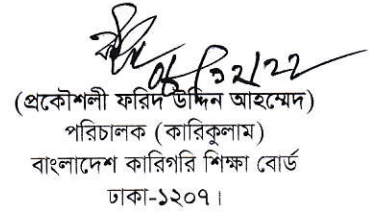 (প্রকৌশলী ফরিদ উদ্দিন আহম্মেদ)
পরিচালক (কারিকুলাম)
বাংলাদেশ কারিগরি শিক্ষা বোর্ড
ঢাকা-১২০৭।